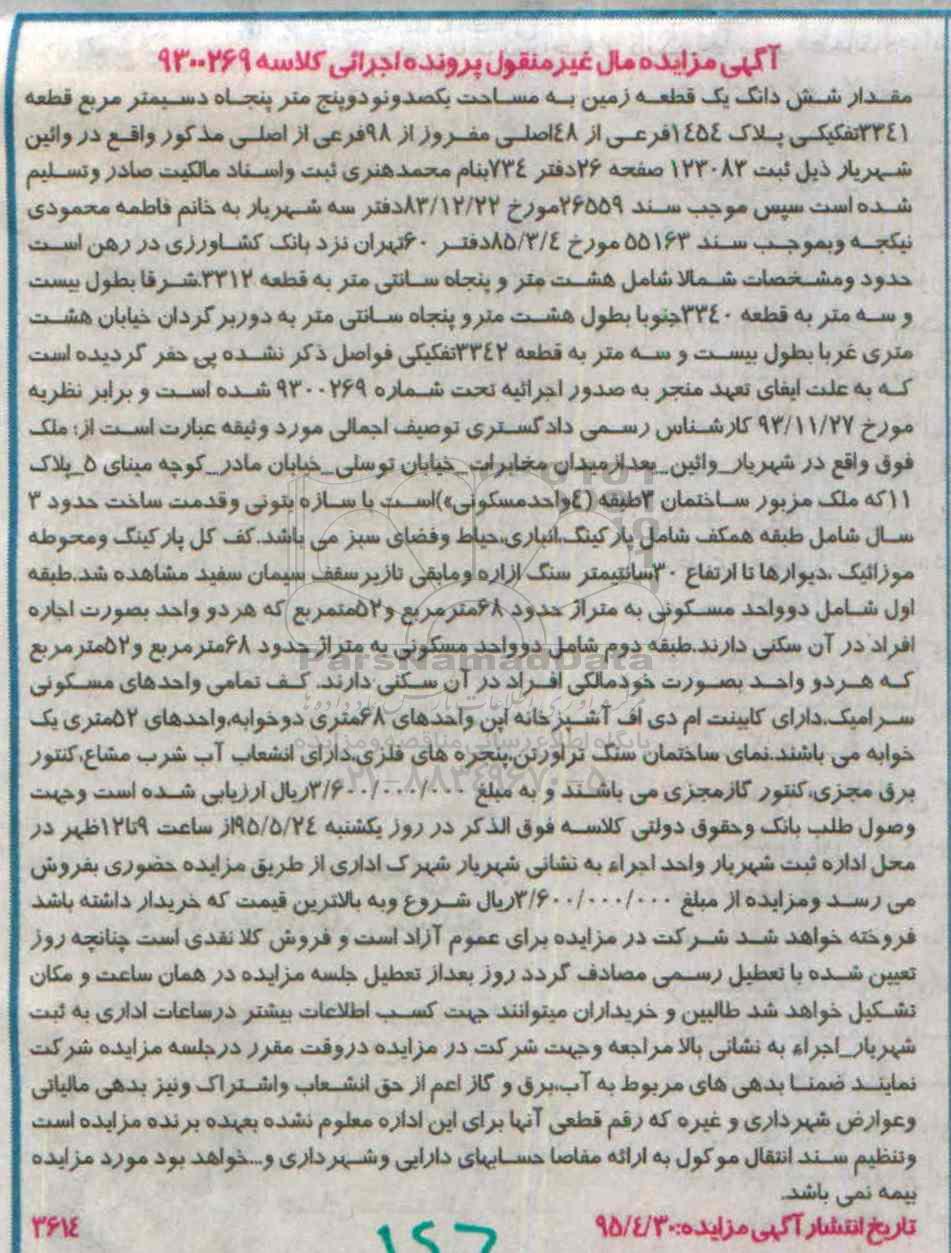 آگهی مزایده مال غیرمنقول پرونده اجرائی کلاسه ۹۳۰۰۲۶۹
مقدار شش دانگ یک قطعه زمین به مساحت یکصدونودوپنج متر پنجاه دسیمتر مربع قطعه
۳۳۴۱تفکیکی پلاک ۱۴۵۴فرعی از ۴۸اصلی مفروز از ۹۸فرعی از اصلی مذکور واقع در وائین
شهریار ذیل ثبت ۱۲۳۰۸۲ صفحه ۲۶دفتر ۷۳۴بنام محمدهنری ثبت واسناد مالکیت صادر وتسلیم
شده است سپس موجب سند ۲۶۵۵۹مورخ ۸۳/۱۲/۲۲دفتر سه شهریار به خانم فاطمه محمودی
نیکجه وبموجب سند ۵۵۱۶۳ مورخ ۸۵/۳/۴دفتر ۶۰تهران نزد بانک کشاورزی در رهن است
حدود ومشخصات شمالا شامل هشت متر و پنجاه سانتی متر به قطعه ۳۳۱۲.شرقا بطول بیست
و سه متر به قطعه ۳۳۴۰جنوبا بطول هشت مترو پنجاه سانتی متر به دوربرگردان خیابان هشت
متری غربا بطول بیست و سه متر به قطعه ۳۳۴۲تفکیکی فواصل ذکر نشده پی حفر گردیده است
که به علت ایفای تعهد منجر به صدور اجرائیه تحت شماره ۹۳۰۰۲۶۹ شده است و برابر نظریه
مورخ ۹۳/۱۱/۲۷ کارشناس رسمی دادگستری توصیف اجمالی مورد وثیقه عبارت است از: ملک
فوق واقع در شهریار_وائین_بعدازمیدان مخابرات_خیابان توسلی_خیابان مادر_کوچه مینای ۵_پلاک
۱۱که ملک مزبور ساختمان ۳طبقه (۴واحدمسکونی»)است با سازه بتونی وقدمت ساخت حدود ۳
سال شامل طبقه همکف شامل پارکینگ،انباری،حیاط وفضای سبز می باشد.کف کل پارکینگ ومحوطه
موزائیک ،دیوارها تا ارتفاع ۳۰سانتیمتر سنگ ازاره ومابقی تازیر سقف سیمان سفید مشاهده شد.طبقه
اول شامل دوواحد مسکونی به متراژ حدود ۶۸مترمربع و۵۲متمربع که هردو واحد بصورت اجاره
افراد در آن سکنی دارند.طبقه دوم شامل دوواحد مسکونی به متراژ حدود ۶۸مترمربع و۵۲مترمربع
که هردو واحد بصورت خودمالکی افراد در آن سکنی دارند. کف تمامی واحدهای مسکونی
سرامیک،دارای کابینت ام دی اف آشپزخانه اپن واحدهای ۶۸متری دوخوابه،واحدهای ۵۲متری یک
خوابه می باشند.نمای ساختمان سنگ تراورتن،پنجره های فلزی،دارای انشعاب آب شرب مشاع،کنتور
برق مجزی،کنتور گازمجزی می باشند و به مبلغ ۳/۶۰۰/۰۰۰/۰۰۰ریال ارزیابی شده است وجهت
وصول طلب بانک وحقوق دولتی کلاسه فوق الذکر در روز یکشنبه ۹۵/۵/۲۴از ساعت ۹تا۱۲ظهر در
محل اداره ثبت شهریار واحد اجراء به نشانی شهریار شهرک اداری از طریق مزایده حضوری بفروش
می رسد ومزایده از مبلغ ۳/۶۰۰/۰۰۰/۰۰۰ریال شروع وبه بالاترین قیمت که خریدار داشته باشد
فروخته خواهد شد شرکت در مزایده برای عموم آزاد است و فروش کلا نقدی است چنانچه روز
تعیین شده با تعطیل رسمی مصادف گردد روز بعداز تعطیل جلسه مزایده در همان ساعت و مکان
تشکیل خواهد شد طالبین و خریداران میتوانند جهت کسب اطلاعات بیشتر درساعات اداری به ثبت
شهریار_اجراء به نشانی بالا مراجعه وجهت شرکت در مزایده دروقت مقرر درجلسه مزایده شرکت
نمایند ضمنا بدهی های مربوط به آب،برق و گاز اعم از حق انشعاب واشتراک ونیز بدهی مالیاتی
وعوارض شهرداری و غیره که رقم قطعی آنها برای این اداره معلوم نشده بعهده برنده مزایده است
وتنظیم سند انتقال موکول به ارائه مفاصا حسابهای دارایی وشهرداری و...خواهد بود مورد مزایده
بیمه نمی باشد.
تاریخ انتشار آگهی مزایده:۹۵/۴/۳۰
۳۶۱۴
ParsNamadData
پایگاه اطلاع رسانی مناقصه و مزایده
۰۲۱-۸۸۳۴۹۶۷۰-۵